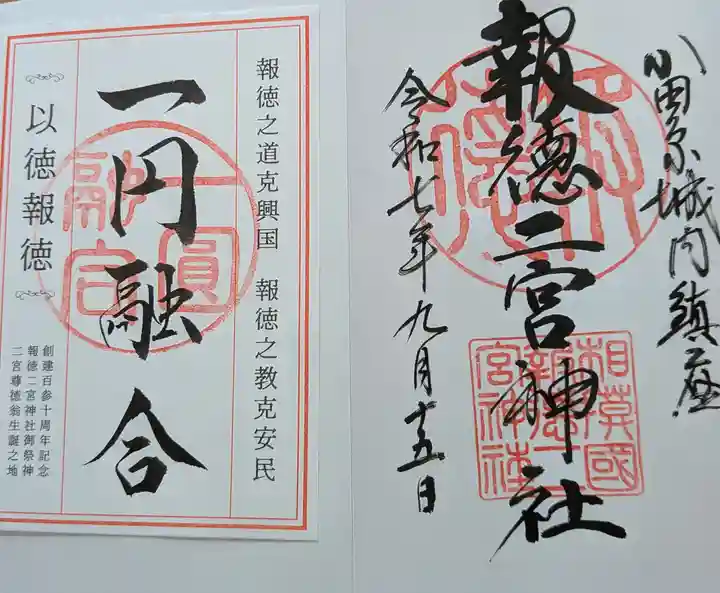 小田原城内鎮座
報徳二宮神社
令和七年九月十五日
相模國
報徳二
宮神社
報徳
報徳之道克興国 報徳之教克安民
一円融合
一圓
融合
以徳報徳
創建百参十周年記念
報徳二宮神社御祭神
二宮尊徳翁生誕之地